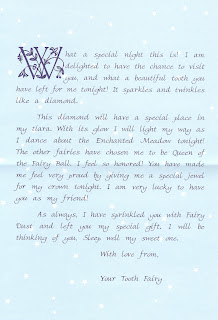 What a special night this is! I am
delighted to have the chance to visit
you, and what a beautiful tooth you
have left for me tonight! It sparkles and twinkles
like a diamond.
This diamond will have a special place in
my tiara. With its glow I will light my way as
I dance about the Enchanted Meadow tonight!
The other fairies have chosen me to be Queen of
the Fairy Ball. I feel so honored! You have made
me feel very proud by giving me a special jewel
for my crown tonight. I am very lucky to have
you as my friend!
As always, I have sprinkled you with Fairy
Dust and left you my special gift. I will be
thinking of you. Sleep well my sweet one.
With love from,
Your Tooth Fairy